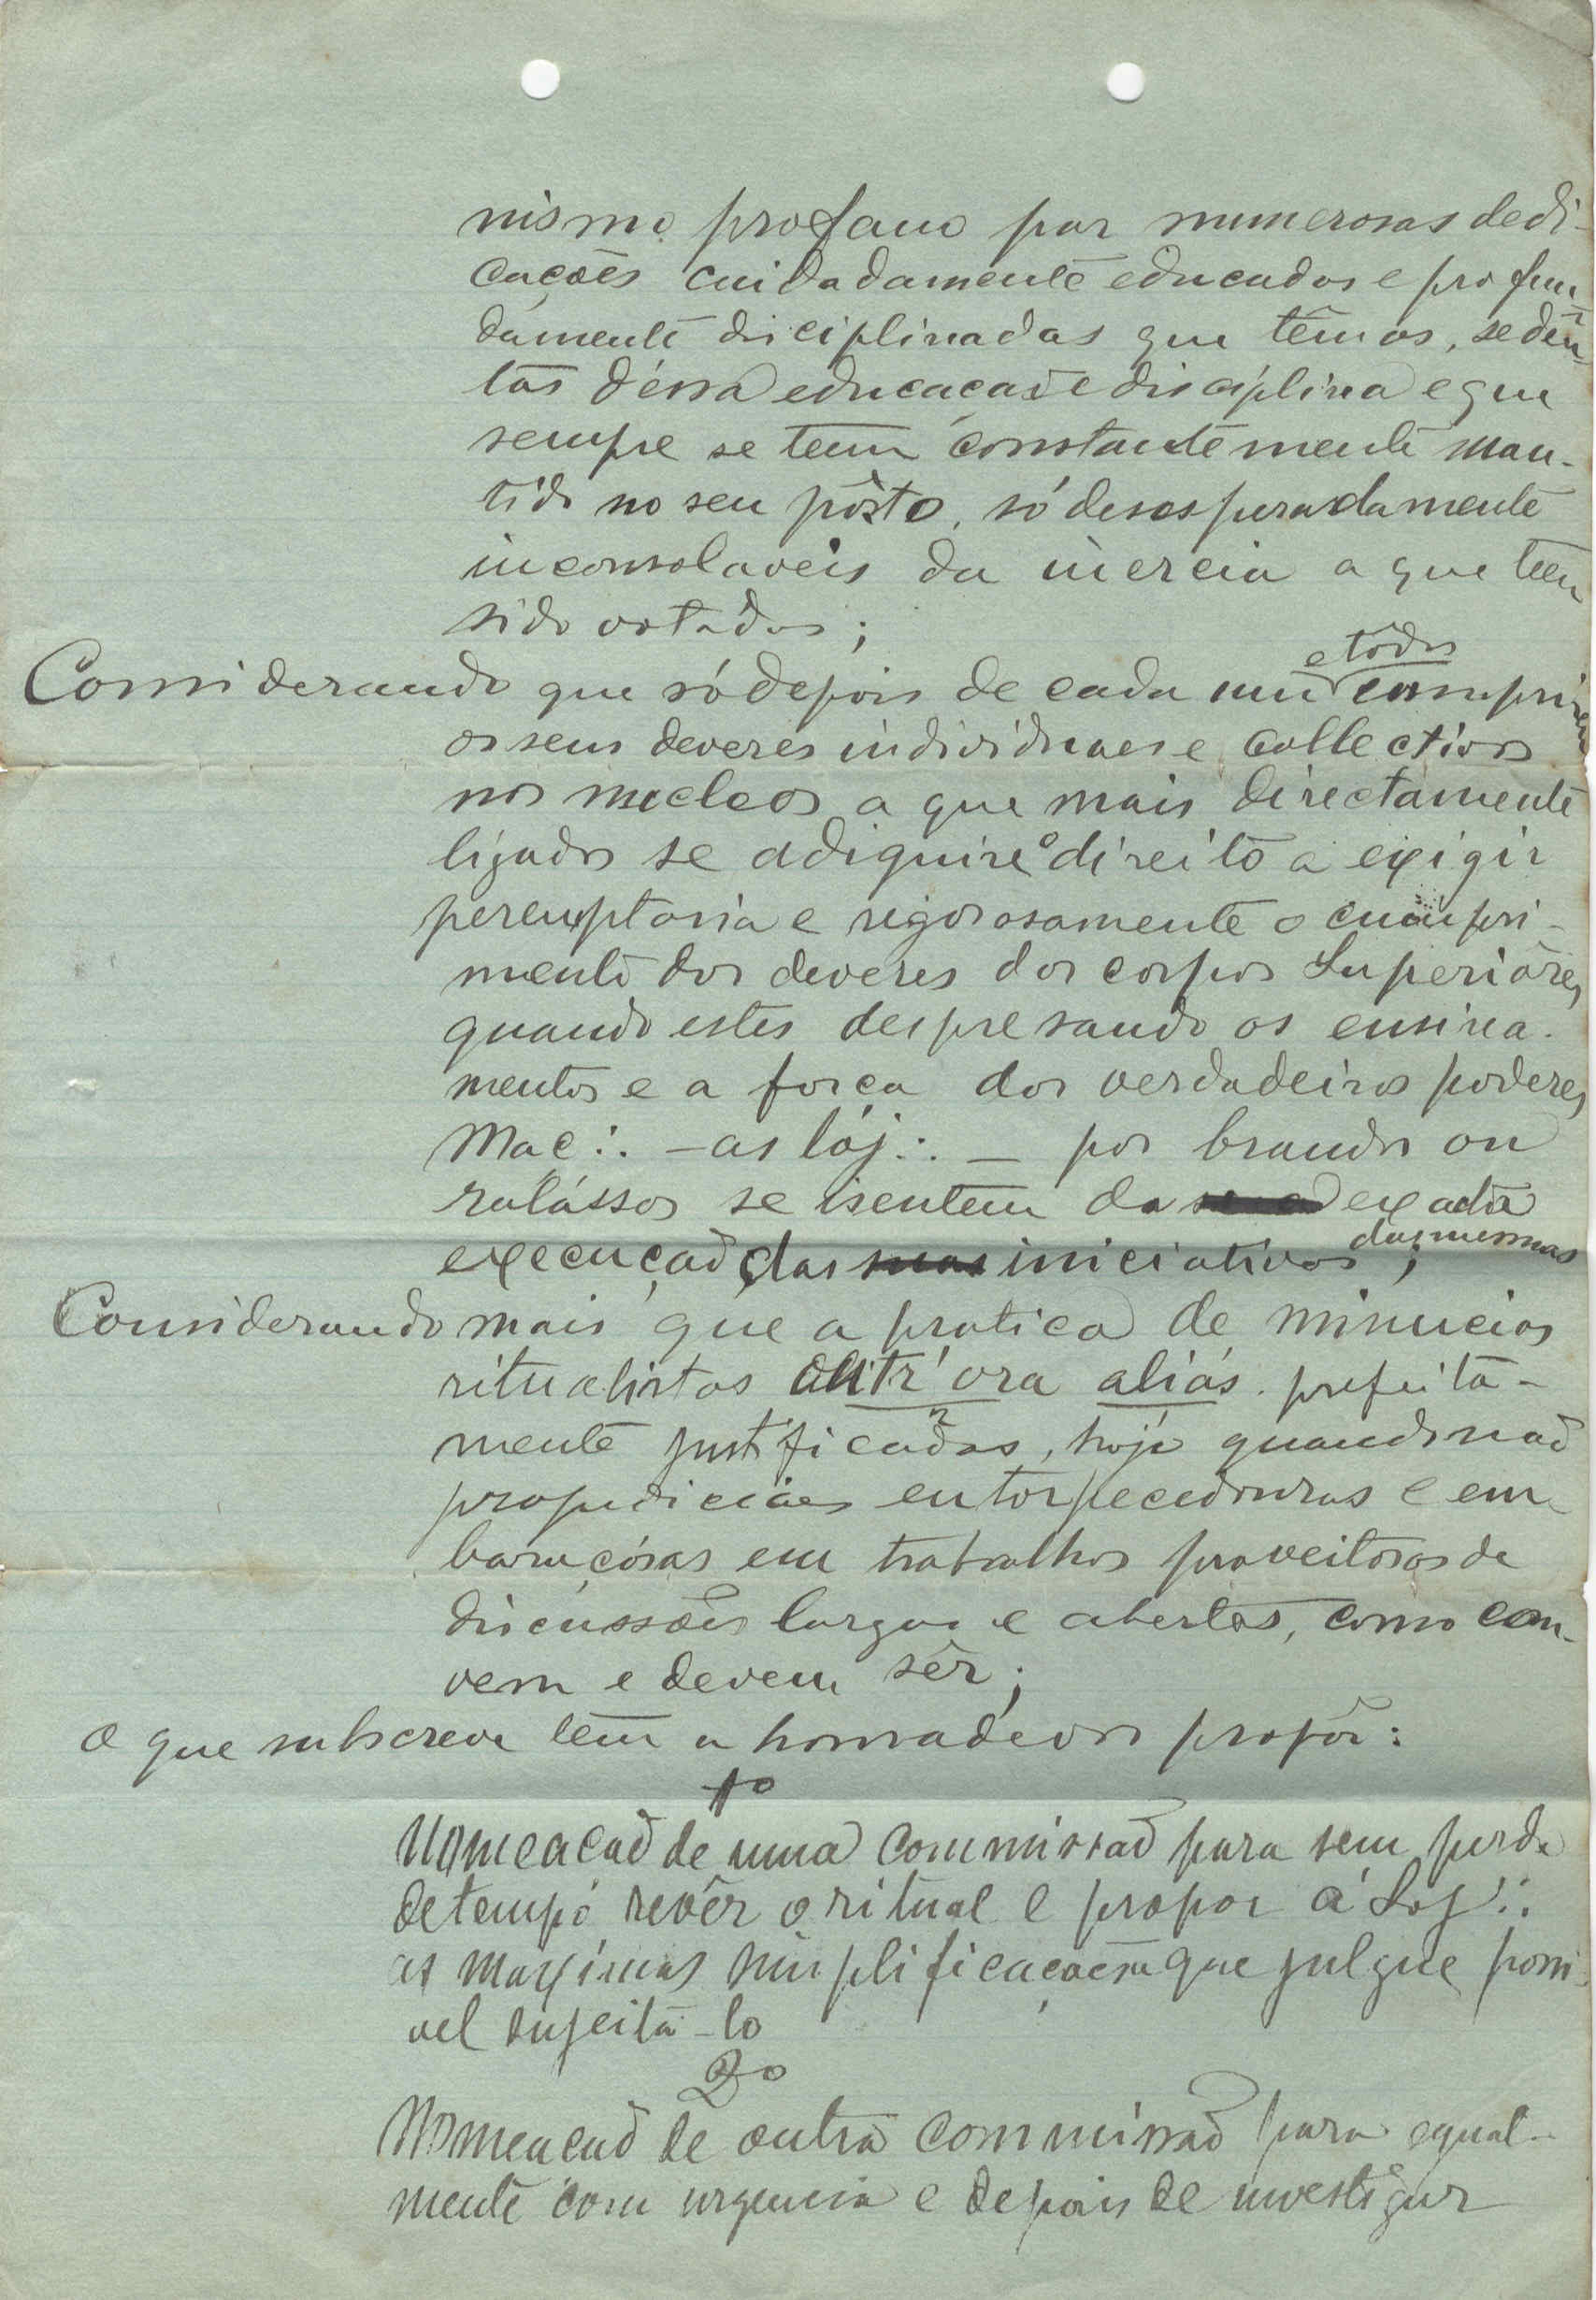 nismo profano por numerosas dedi-
cações cuidadamente educadas e profun-
damente diciplinadas que têmos, seden-
tas déssa educação e disciplina e que
sempre se tem constantemente man-
tido no seu pôsto, só desesperadamente
inconsolaveis da inercia a que teem
sido votadas;
Considerando que só depois de cada um e todos cumprirem
os seus deveres individuaes e collectivos
nos nucleos a que mais directamente
ligados se adiquire o direito a exigir
peremptoria e rigorosamente o cumpri-
mento dos deveres dos corpos Superiôres,
quando estes despresando os ensina-
mentos e a força dos verdadeiros poderes
Maç∴ – as lój∴ – por brandos ou
ralássos se isentem da exacta
execução das iniciativas das mesmas;
Considerando mais que a pratica de minucias
ritualistas outr'ora aliás perfeita-
mente justificadas, hoje quando não
prejudiciaes entorpecedouras e em-
baraçósas em trabalhos proveitosos de
discussões largas e abertas, como con-
vem e devem sêr;
O que subscreve tem a honra de vos propôr:
1º
Nomeação de uma commissão para sem perda
de tempo revêr o ritual e propor á Loj∴
as maximas simplificações que julgue possi-
vel sujeitá-lo
2º
Nomeação de outra commissão para egual-
mente com urgencia e depois de investigar